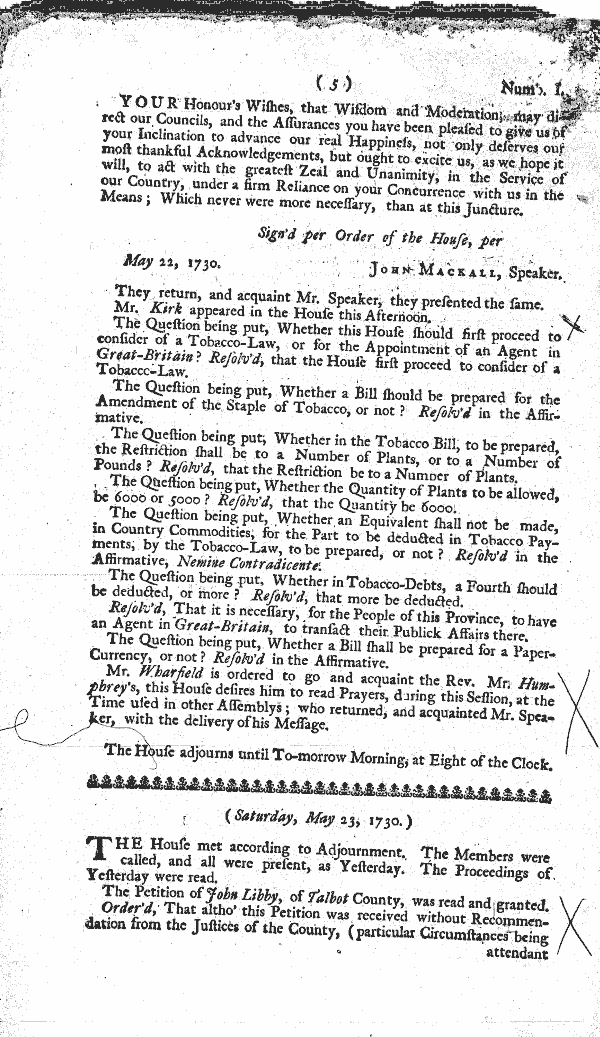 ( 5 ) Numb. I.
YOUR Honour's Wiſhes, that Wiſdom and Moderation, may di-
rect our Councils, and the Aſſurances you have been pleaſed to give us of
your Inclination to advance our real Happineſs, not only deſerves our
moſt thankful Acknowledgements, but ought to excite us, as we hope it
will, to act with the greateſt Zeal and Unanimity, in the Service of
our Country, under a firm Reliance on your Concurrence with us in the
Means; Which never were more neceſſary, than at this Juncture.
Sign'd per Order of the Houſe, per
May 22, 1730. JOHN MACKALL, Speaker.
They return, and acquaint Mr. Speaker, they preſented the ſame.
Mr. Kirk appeared in the Houſe this Afternoon.
The Queſtion being put, Whether this Houſe ſhould firſt proceed to
conſider of a Tobacco-Law, or for the Appointment of an Agent in
Great-Britain? Reſolv'd, that the Houſe firſt proceed to conſider of a
Tobacco-Law.
The Queſtion being put, Whether a Bill ſhould be prepared for the
Amendment of the Staple of Tobacco, or not? Reſolv'd in the Affir-
mative.
The Queſtion being put, Whether in the Tobacco Bill, to be prepared,
the Reſtriction ſhall be to a Number of Plants, or to a Number of
Pounds? Reſolv'd, that the Reſtriction be to a Number of Plants.
The Queſtion being put, Whether the Quantity of Plants to be allowed,
be 6000 or 5000? Reſolv'd, that the Quantity be 6000.
The Queſtion being put, Whether an Equivalent ſhall not be made,
in Country Commodities, for the Part to be deducted in Tobacco Pay-
ments, by the Tobacco-Law, to be prepared, or not? Reſolv'd in the
Affirmative, Nemine Contradicente.
The Queſtion being put, Whether in Tobacco-Debts, a Fourth ſhould
be deducted, or more? Reſolv'd, that more be deducted.
Reſolv'd, That it is neceſſary, for the People of this Province, to have
an Agent in Great-Britain, to tranſact their Publick Affairs there.
The Queſtion being put, Whether a Bill ſhall be prepared for a Paper-
Currency, or not? Reſolv'd in the Affirmative.
Mr. Wharfield is ordered to go and acquaint the Rev. Mr. Hum-
phrey's, this Houſe deſires him to read Prayers, during this Seſſion, at the
Time uſed in other Aſſemblys; who returned, and acquainted Mr. Spea-
ker, with the delivery of his Meſſage.
The Houſe adjourns until To-morrow Morning, at Eight of the Clock.
(Saturday, May 23, 1730.)
THE Houſe met according to Adjournment. The Members were
called, and all were preſent, as Yeſterday. The Proceedings of
Yeſterday were read.
The Petition of John Libby, of Talbot County, was read and granted.
Order'd, That altho' this Petition was received without Recommen-
dation from the Juſtices of the County, (particular Circumſtances being
attendant